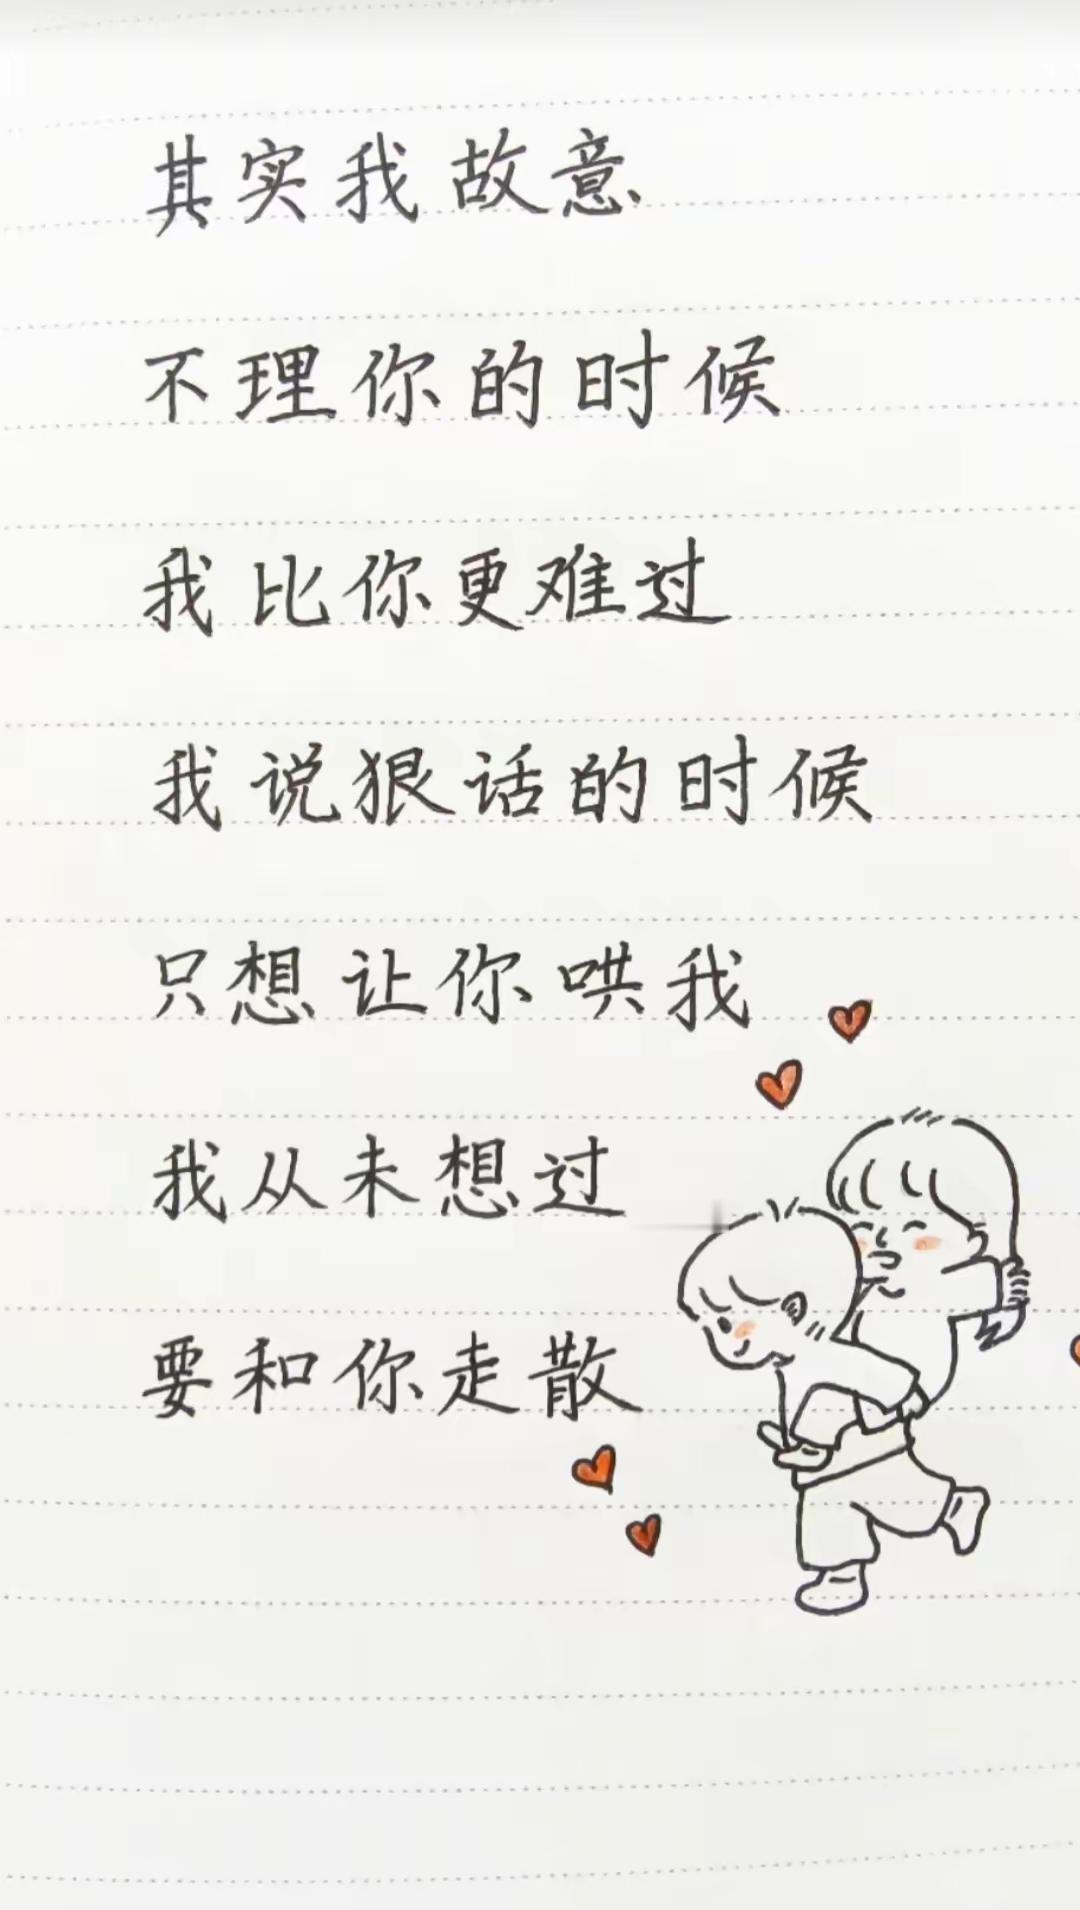 其实我故意
不理你的时候
我比你更难过
我说狠话的时候
只想让你哄我
我从未想过
要和你走散